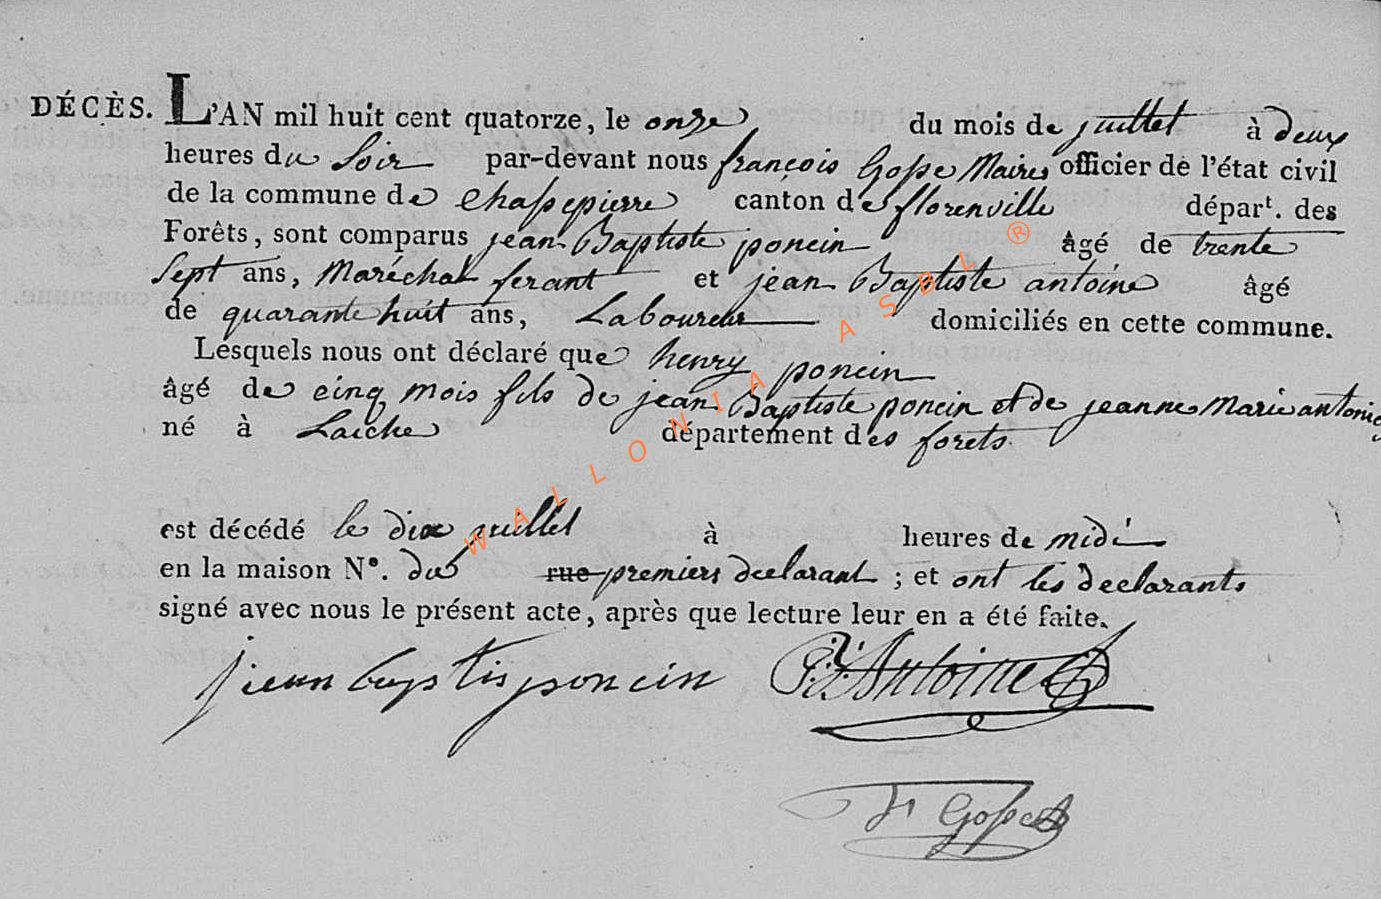 DÉCÈS. L'AN mil huit cent quatorze, le onze du mois de juillet à deux
heures du Soir par-devant nous françois Gosse Maire officier de l'état civil
de la commune de Chassepierre canton de florenville départ. des
Forêts, sont comparus jean Baptiste poncin âgé de trente
Sept ans, Maréchal ferant et jean Baptiste antoine âgé
de quarante huit ans, Laboureur domiciliés en cette commune.
Lesquels nous ont déclaré que henry poncin
âgé de cinq mois fils de jean Baptiste poncin et de jeanne Marie antoine
né à Laiche département des forets
est décédé le dix juillet à heures de midi
en la maison N°. du rue premier declarant ; et ont les declarants
signé avec nous le présent acte, après que lecture leur en a été faite.
jean baptis poncin Antoine
Gosse
WALLONIA ASBL ®